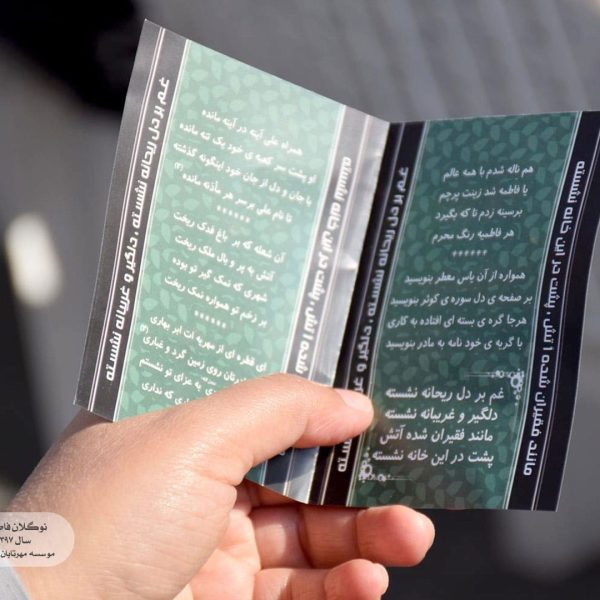 هم ناله شدم با همه عالم
یا فاطمه شد زینت پرچم
برسینه زدم تا که بگیرد
هر فاطمیه رنگ محرم
همواره از آن یاس معطر بنویسید
بر صفحه ی دل سوره ی کوثر بنویسید
هرجا گره ی بسته ای افتاده به کاری
با گریه ی خود نامه به مادر بنویسید
غم بر دل ریحانه نشسته
دلگیر و غریبانه نشسته
مانند فقیران شده آتش
پشت در این خانه نشسته
همراه علی آینه در آینه مانده
او پشت سر کعبه ی خود یک تنه مانده
با جان و دل از جان خود اینگونه گذشته
تا نام علی برسر هر مأذنه مانده (۲)
******
آن شعله که بر باغ فدک ریخت
آتش به پر و بال ملک ریخت
شهری که نمک گیر تو بوده
بر زخم تو همواره نمک ریخت
******
ای قطره ای از مهریه ات ابر بهاری (۲)
روی زمین گرد و غباری
به عزای تو نشستم
که نداری
غم بر دل ریحانه نشسته ، دلگیر و غریبانه نشسته
مانند فقیران شده آتش ، پشت در این خانه نشسته
غم بر دل ریحانه نشسته ، دلگیر و
شده آتش ، پشت در این خانه نشسته
نوگلان
سال ۱۳۹۷
موسسه مهرتابان